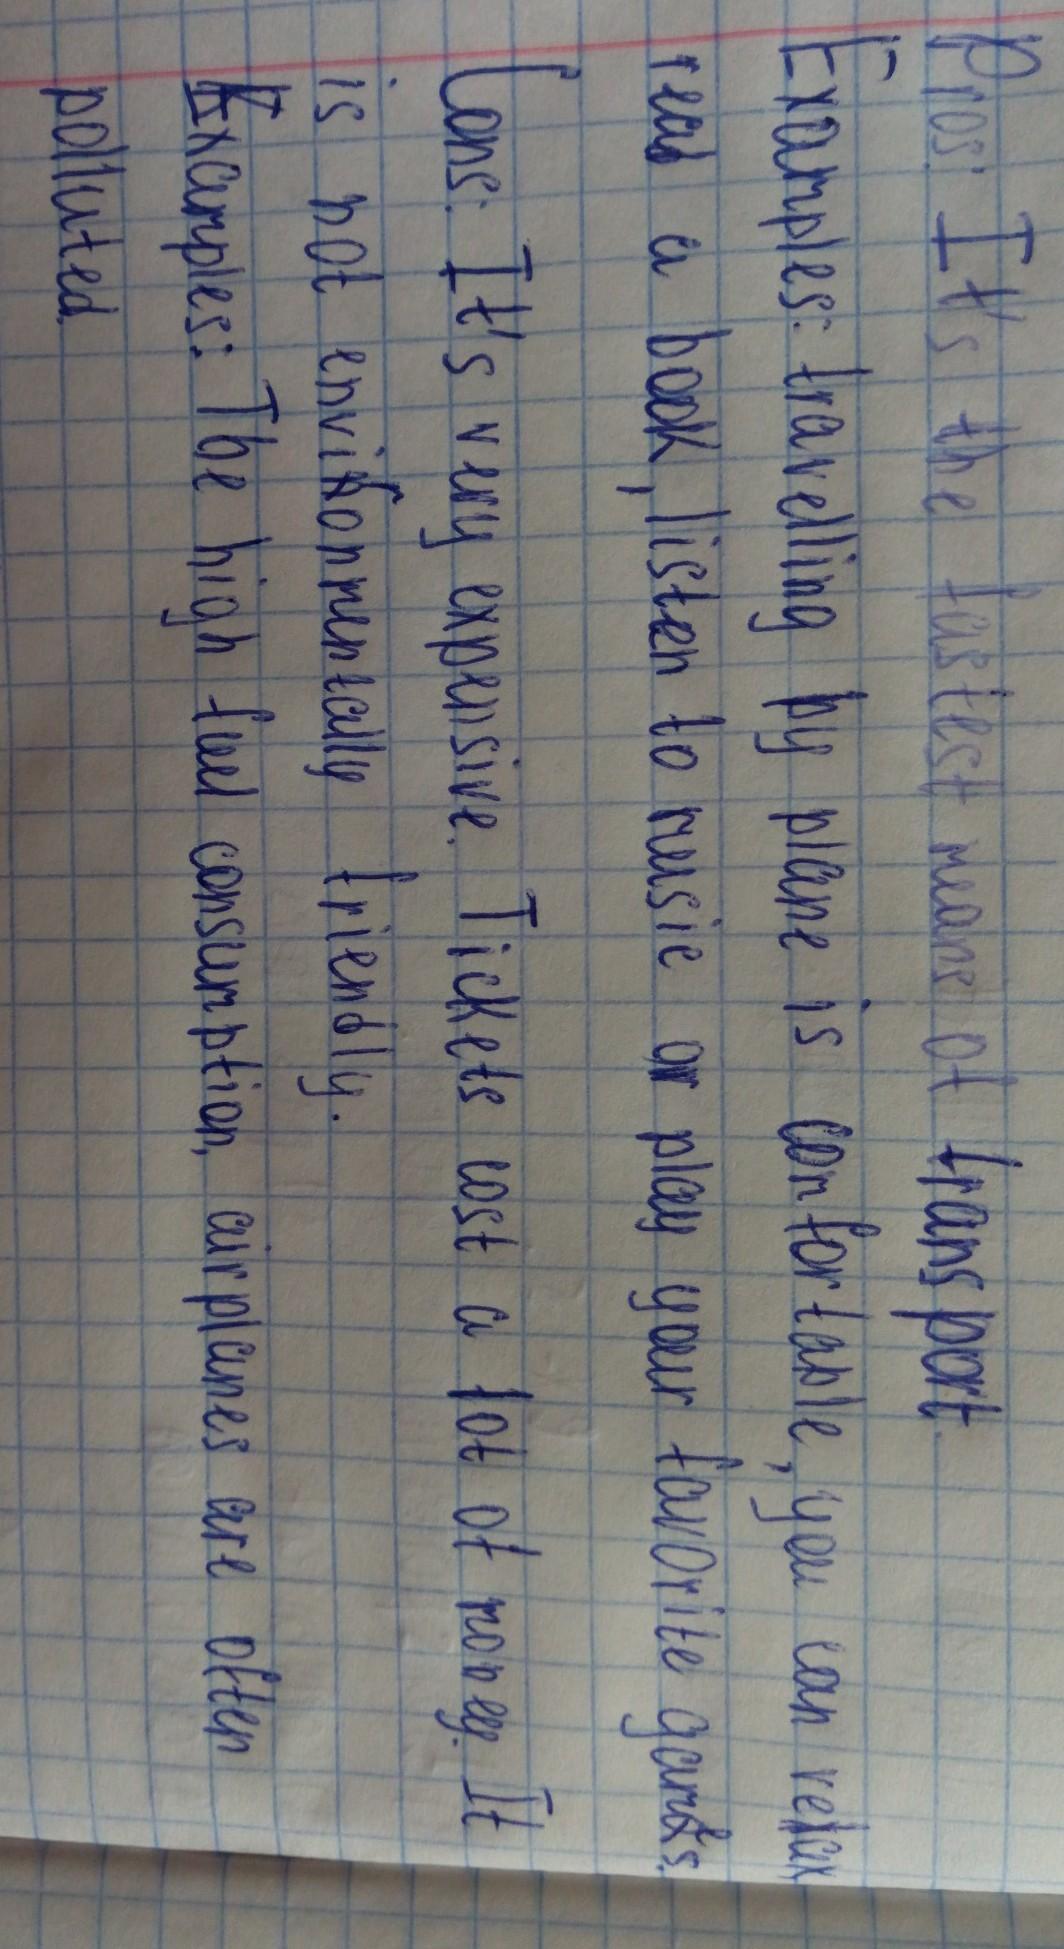 Pros: It's the fastest means of transport.
Examples: traveling by plane is comfortable, you can relax,
read a book, listen to music or play your favorite games.
Cons: It's very expensive. Tickets cost a lot of money. It
is not environmentally friendly.
Examples: The high fuel consumption, airplanes are often
polluted.